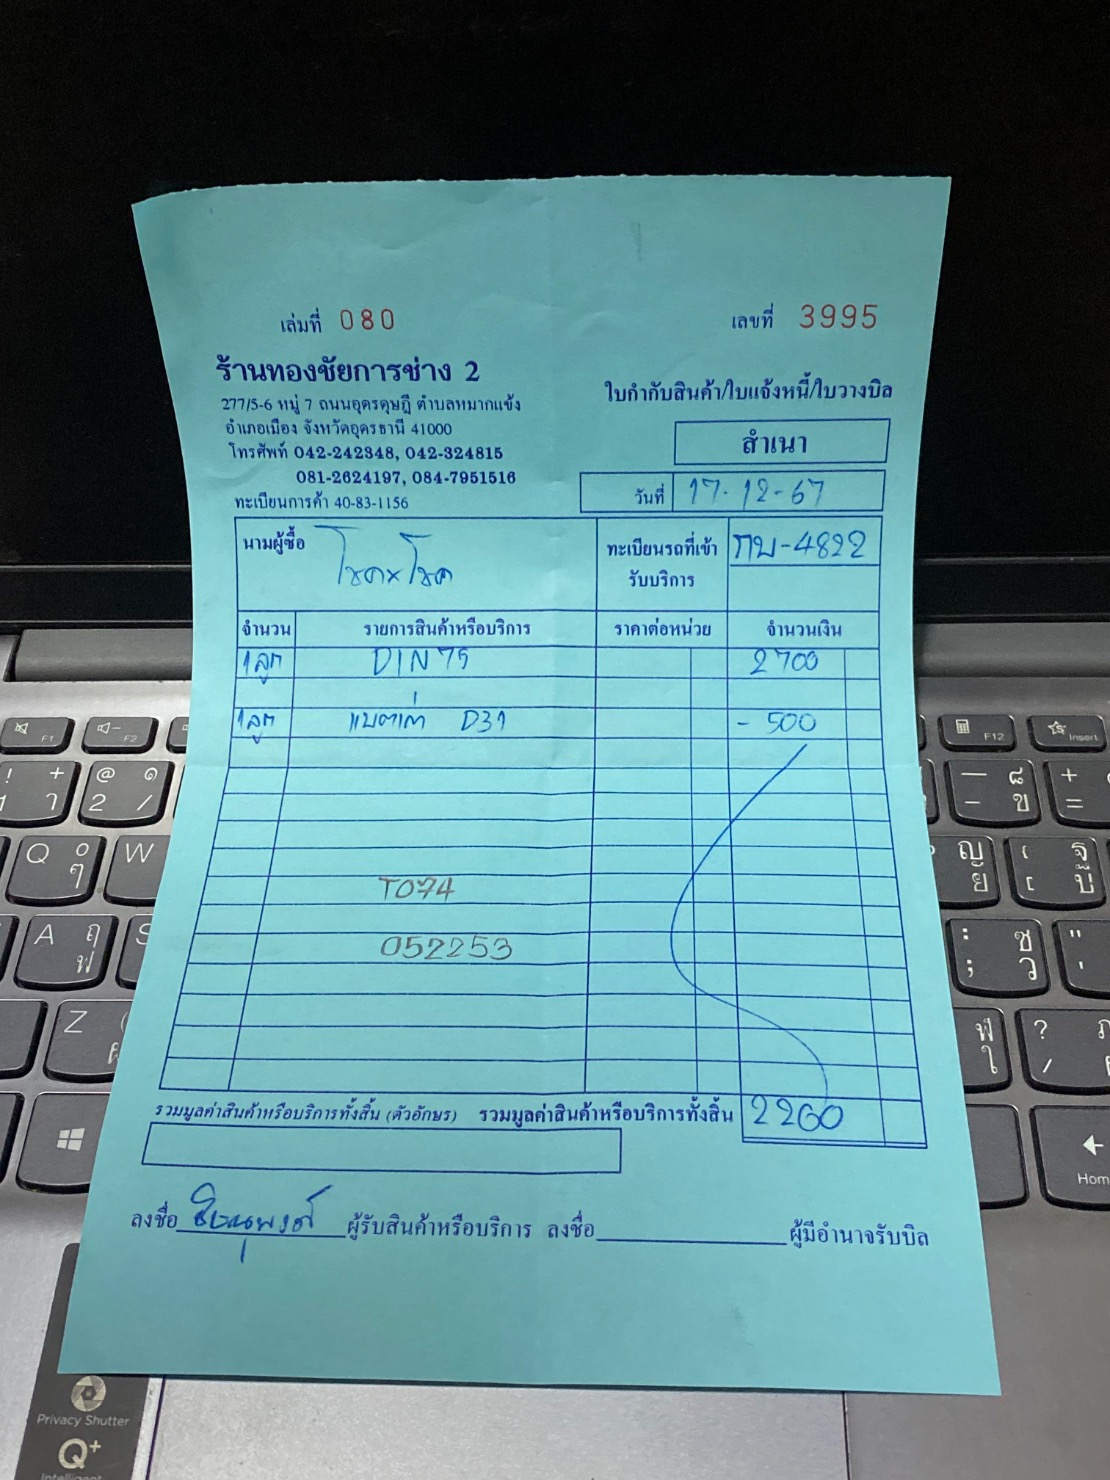 เล่มที่ 080
เลขที่ 3995
ร้านทองชัยการช่าง 2
277/5-6 หมู่ 7 ถนนอุดรดุษฎี ตำบลหมากแข้ง
อำเภอเมือง จังหวัดอุดรธานี 41000
โทรศัพท์ 042-242348, 042-324815
081-2624197, 084-7951516
ทะเบียนการค้า 40-83-1156
ใบกำกับสินค้า/ใบแจ้งหนี้/ใบวางบิล
สำเนา
วันที่ 17-12-67
นามผู้ซื้อ โชค×โชค
ทะเบียนรถที่เข้า กบ-4822
รับบริการ
จำนวน รายการสินค้าหรือบริการ ราคาต่อหน่วย จำนวนเงิน
1ลูก DIN75 2700
1ลูก แบตเก่า D31 - 500
T074
052253
รวมมูลค่าสินค้าหรือบริการทั้งสิ้น (ตัวอักษร) รวมมูลค่าสินค้าหรือบริการทั้งสิ้น 2200
ลงชื่อ ผู้รับสินค้าหรือบริการ ลงชื่อ ผู้มีอำนาจรับบิล
F1
F2
F12
Insert
Q
W
A
S
Z
Home
Privacy Shutter
Q+
Intelligent